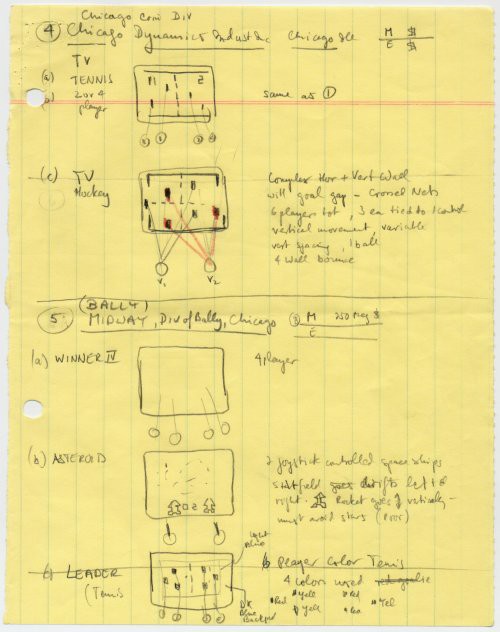 Chicago Coin Div
④ Chicago Dynamics Indust Inc Chicago Ill M $1
E $
TV
(a) TENNIS
(b) 2 or 4
player
same as ①
(c) TV
Hockey
V1 V2
Complex Hor + Vert Wall
will goal gap - Crossed Nets
6 players tot, 3 ea tied to 1 control
vertical movement, variable
vert spacing, 1 ball
4 wall bounce
(BALLY)
⑤ MIDWAY, Div of Bally, Chicago M 250 Meg $
E
(a) WINNER IV
4 Player
(b) ASTEROID
2 joystick controlled space ships
starfield goes drifts left to
right. Rocket goes vertically -
must avoid stars (Poor)
LEADER
(Tennis
Light Blue
DK
Blue
player color Tennis
4 colors used
Red Yell Red
Yell Red Yel